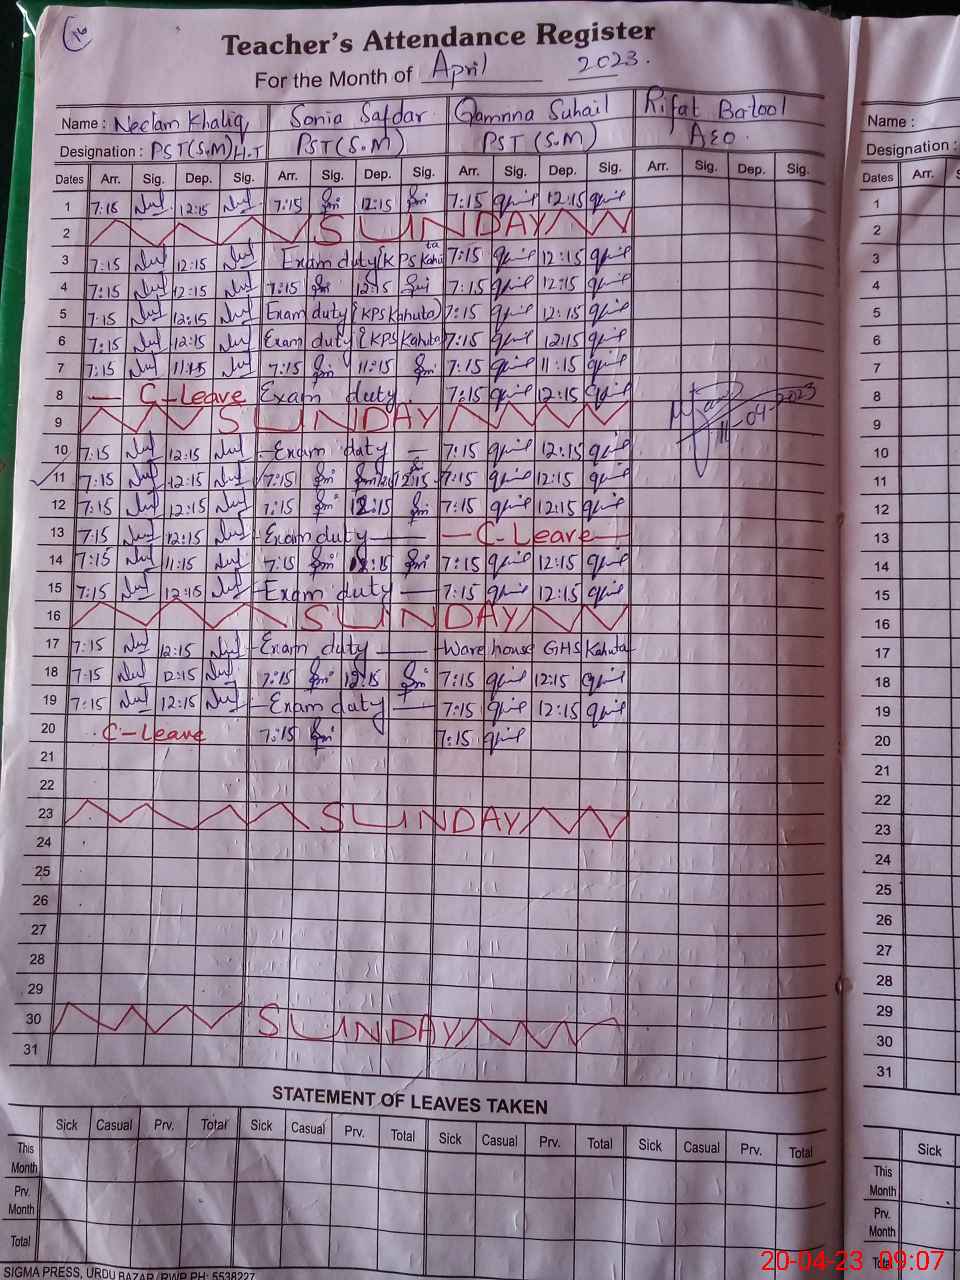 16
Teacher's Attendance Register
For the Month of April 2023.
Name : Neelam Khaliq Sonia Safdar Qamnna Suhail Rifat Batool Name :
Designation : PST(S.M) H.T PST(S.M) PST(S.M) AEO. Designation :
Dates Arr. Sig. Dep. Sig. Arr. Sig. Dep. Sig. Arr. Sig. Dep. Sig. Arr. Sig. Dep. Sig. Dates Arr.
1 7:15 12:15 7:15 12:15 7:15 12:15 1
2 SUNDAY 2
3 7:15 12:15 Exam duty (KPS Kahuta 7:15 12:15 3
4 7:15 12:15 7:15 12:15 7:15 12:15 4
5 7:15 12:15 Exam duty (KPS Kahuta) 7:15 12:15 5
6 7:15 12:15 Exam duty (KPS Kahuta) 7:15 12:15 6
7 7:15 11:15 7:15 11:15 7:15 11:15 7
8 — C-Leave Exam duty. 7:15 12:15 8
9 SUNDAY 9
11-04-2023
10 7:15 12:15 Exam duty — 7:15 12:15 10
11 7:15 12:15 7:15 12:15 7:15 12:15 11
12 7:15 12:15 7:15 12:15 7:15 12:15 12
13 7:15 12:15 Exam duty — — C-Leave — 13
14 7:15 11:15 7:15 7:15 12:15 14
15 7:15 12:15 Exam duty — 7:15 12:15 15
16 SUNDAY 16
17 7:15 12:15 Exam duty — Ware house GHS Kahuta 17
18 7:15 12:15 7:15 12:15 7:15 12:15 18
19 7:15 12:15 Exam duty — 7:15 12:15 19
20 C-Leave 7:15 7:15 20
21 21
22 22
23 SUNDAY 23
24 24
25 25
26 26
27 27
28 28
29 29
30 SUNDAY 30
31 31
STATEMENT OF LEAVES TAKEN
Sick Casual Prv. Total Sick Casual Prv. Total Sick Casual Prv. Total Sick Casual Prv. Total Sick
This Month This Month
Prv. Month Prv. Month
Total Total
SIGMA PRESS, URDU BAZAR / RWP PH: 5538227
20-04-23 09:07